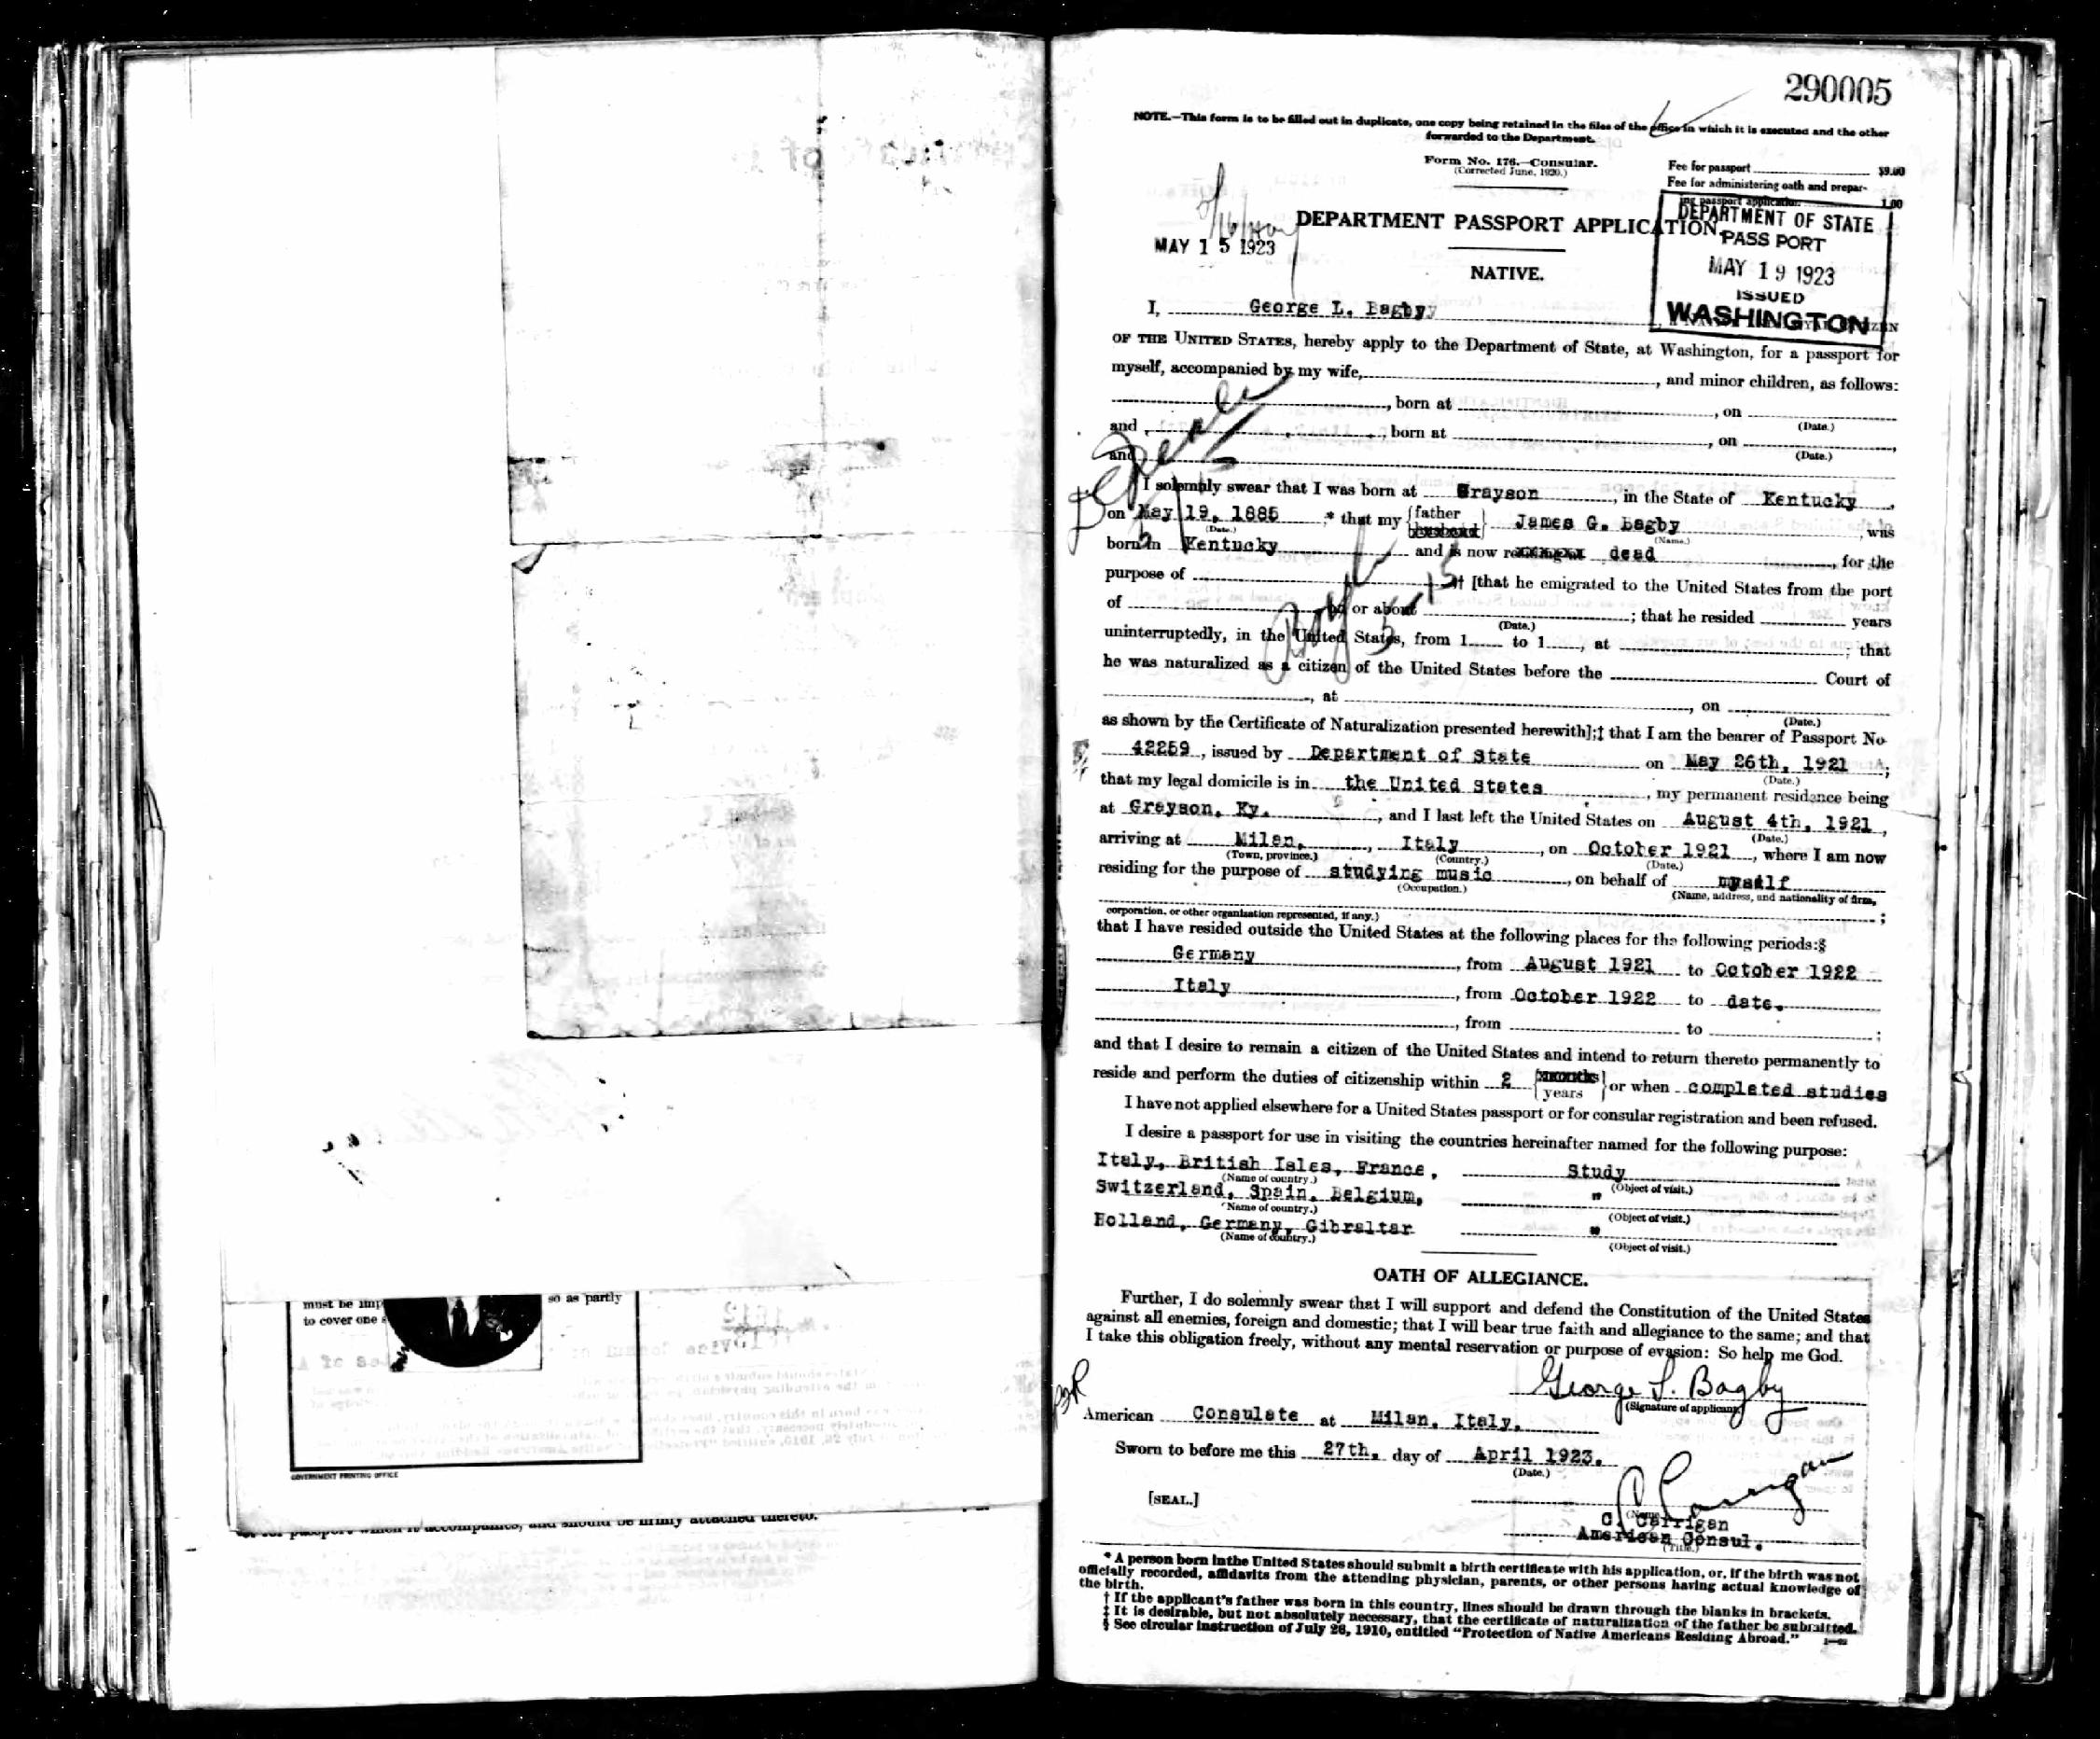 must be imp so as partly
to cover one s
GOVERNMENT PRINTING OFFICE
for passport which it accompanies, and should be firmly attached thereto.
290005
NOTE.—This form is to be filled out in duplicate, one copy being retained in the files of the office in which it is executed and the other
forwarded to the Department.
Form No. 176.—Consular.
(Corrected June, 1920.)
Fee for passport $9.00
Fee for administering oath and prepar-
ing passport application 1.00
DEPARTMENT PASSPORT APPLICATION.
MAY 15 1923
DEPARTMENT OF STATE
PASS PORT
MAY 19 1923
ISSUED
WASHINGTON
NATIVE.
I, George L. Bagby
OF THE UNITED STATES, hereby apply to the Department of State, at Washington, for a passport for
myself, accompanied by my wife, , and minor children, as follows:
, born at , on
(Date.)
and , born at , on
(Date.)
and
I solemnly swear that I was born at Grayson , in the State of Kentucky ,
on May 19, 1885 ,* that my {father husband} James G. Bagby , was
(Date.) (Name.)
born in Kentucky and is now residing at dead , for the
purpose of ;† [that he emigrated to the United States from the port
of on or about ; that he resided years
(Date.)
uninterruptedly, in the United States, from 1 to 1 , at ; that
he was naturalized as a citizen of the United States before the Court of
, at , on
(Date.)
as shown by the Certificate of Naturalization presented herewith];‡ that I am the bearer of Passport No
42259 , issued by Department of State on May 26th, 1921 ;
(Date.)
that my legal domicile is in the United States , my permanent residence being
at Grayson, Ky. , and I last left the United States on August 4th, 1921 ,
(Date.)
arriving at Milan, , Italy , on October 1921 , where I am now
(Town, province.) (Country.) (Date.)
residing for the purpose of studying music , on behalf of myself
(Occupation.) (Name, address, and nationality of firm,
corporation, or other organization represented, if any.) ;
that I have resided outside the United States at the following places for the following periods:§
Germany , from August 1921 to October 1922
Italy , from October 1922 to date.
, from to ;
and that I desire to remain a citizen of the United States and intend to return thereto permanently to
reside and perform the duties of citizenship within 2 {months years} or when completed studies
I have not applied elsewhere for a United States passport or for consular registration and been refused.
I desire a passport for use in visiting the countries hereinafter named for the following purpose:
Italy, British Isles, France, Study
(Name of country.) (Object of visit.)
Switzerland, Spain, Belgium, "
(Name of country.) (Object of visit.)
Holland, Germany, Gibraltar "
(Name of country.) (Object of visit.)
OATH OF ALLEGIANCE.
Further, I do solemnly swear that I will support and defend the Constitution of the United States
against all enemies, foreign and domestic; that I will bear true faith and allegiance to the same; and that
I take this obligation freely, without any mental reservation or purpose of evasion: So help me God.
George L. Bagby
(Signature of applicant.)
American Consulate at Milan, Italy.
Sworn to before me this 27th. day of April 1923.
(Date.)
C Carrigan
[SEAL.]
(Name.)
C. Carrigan
American Consul.
(Title.)
* A person born in the United States should submit a birth certificate with his application, or, if the birth was not
officially recorded, affidavits from the attending physician, parents, or other persons having actual knowledge of
the birth.
† If the applicant's father was born in this country, lines should be drawn through the blanks in brackets.
‡ It is desirable, but not absolutely necessary, that the certificate of naturalization of the father be submitted.
§ See circular instruction of July 26, 1910, entitled "Protection of Native Americans Residing Abroad."